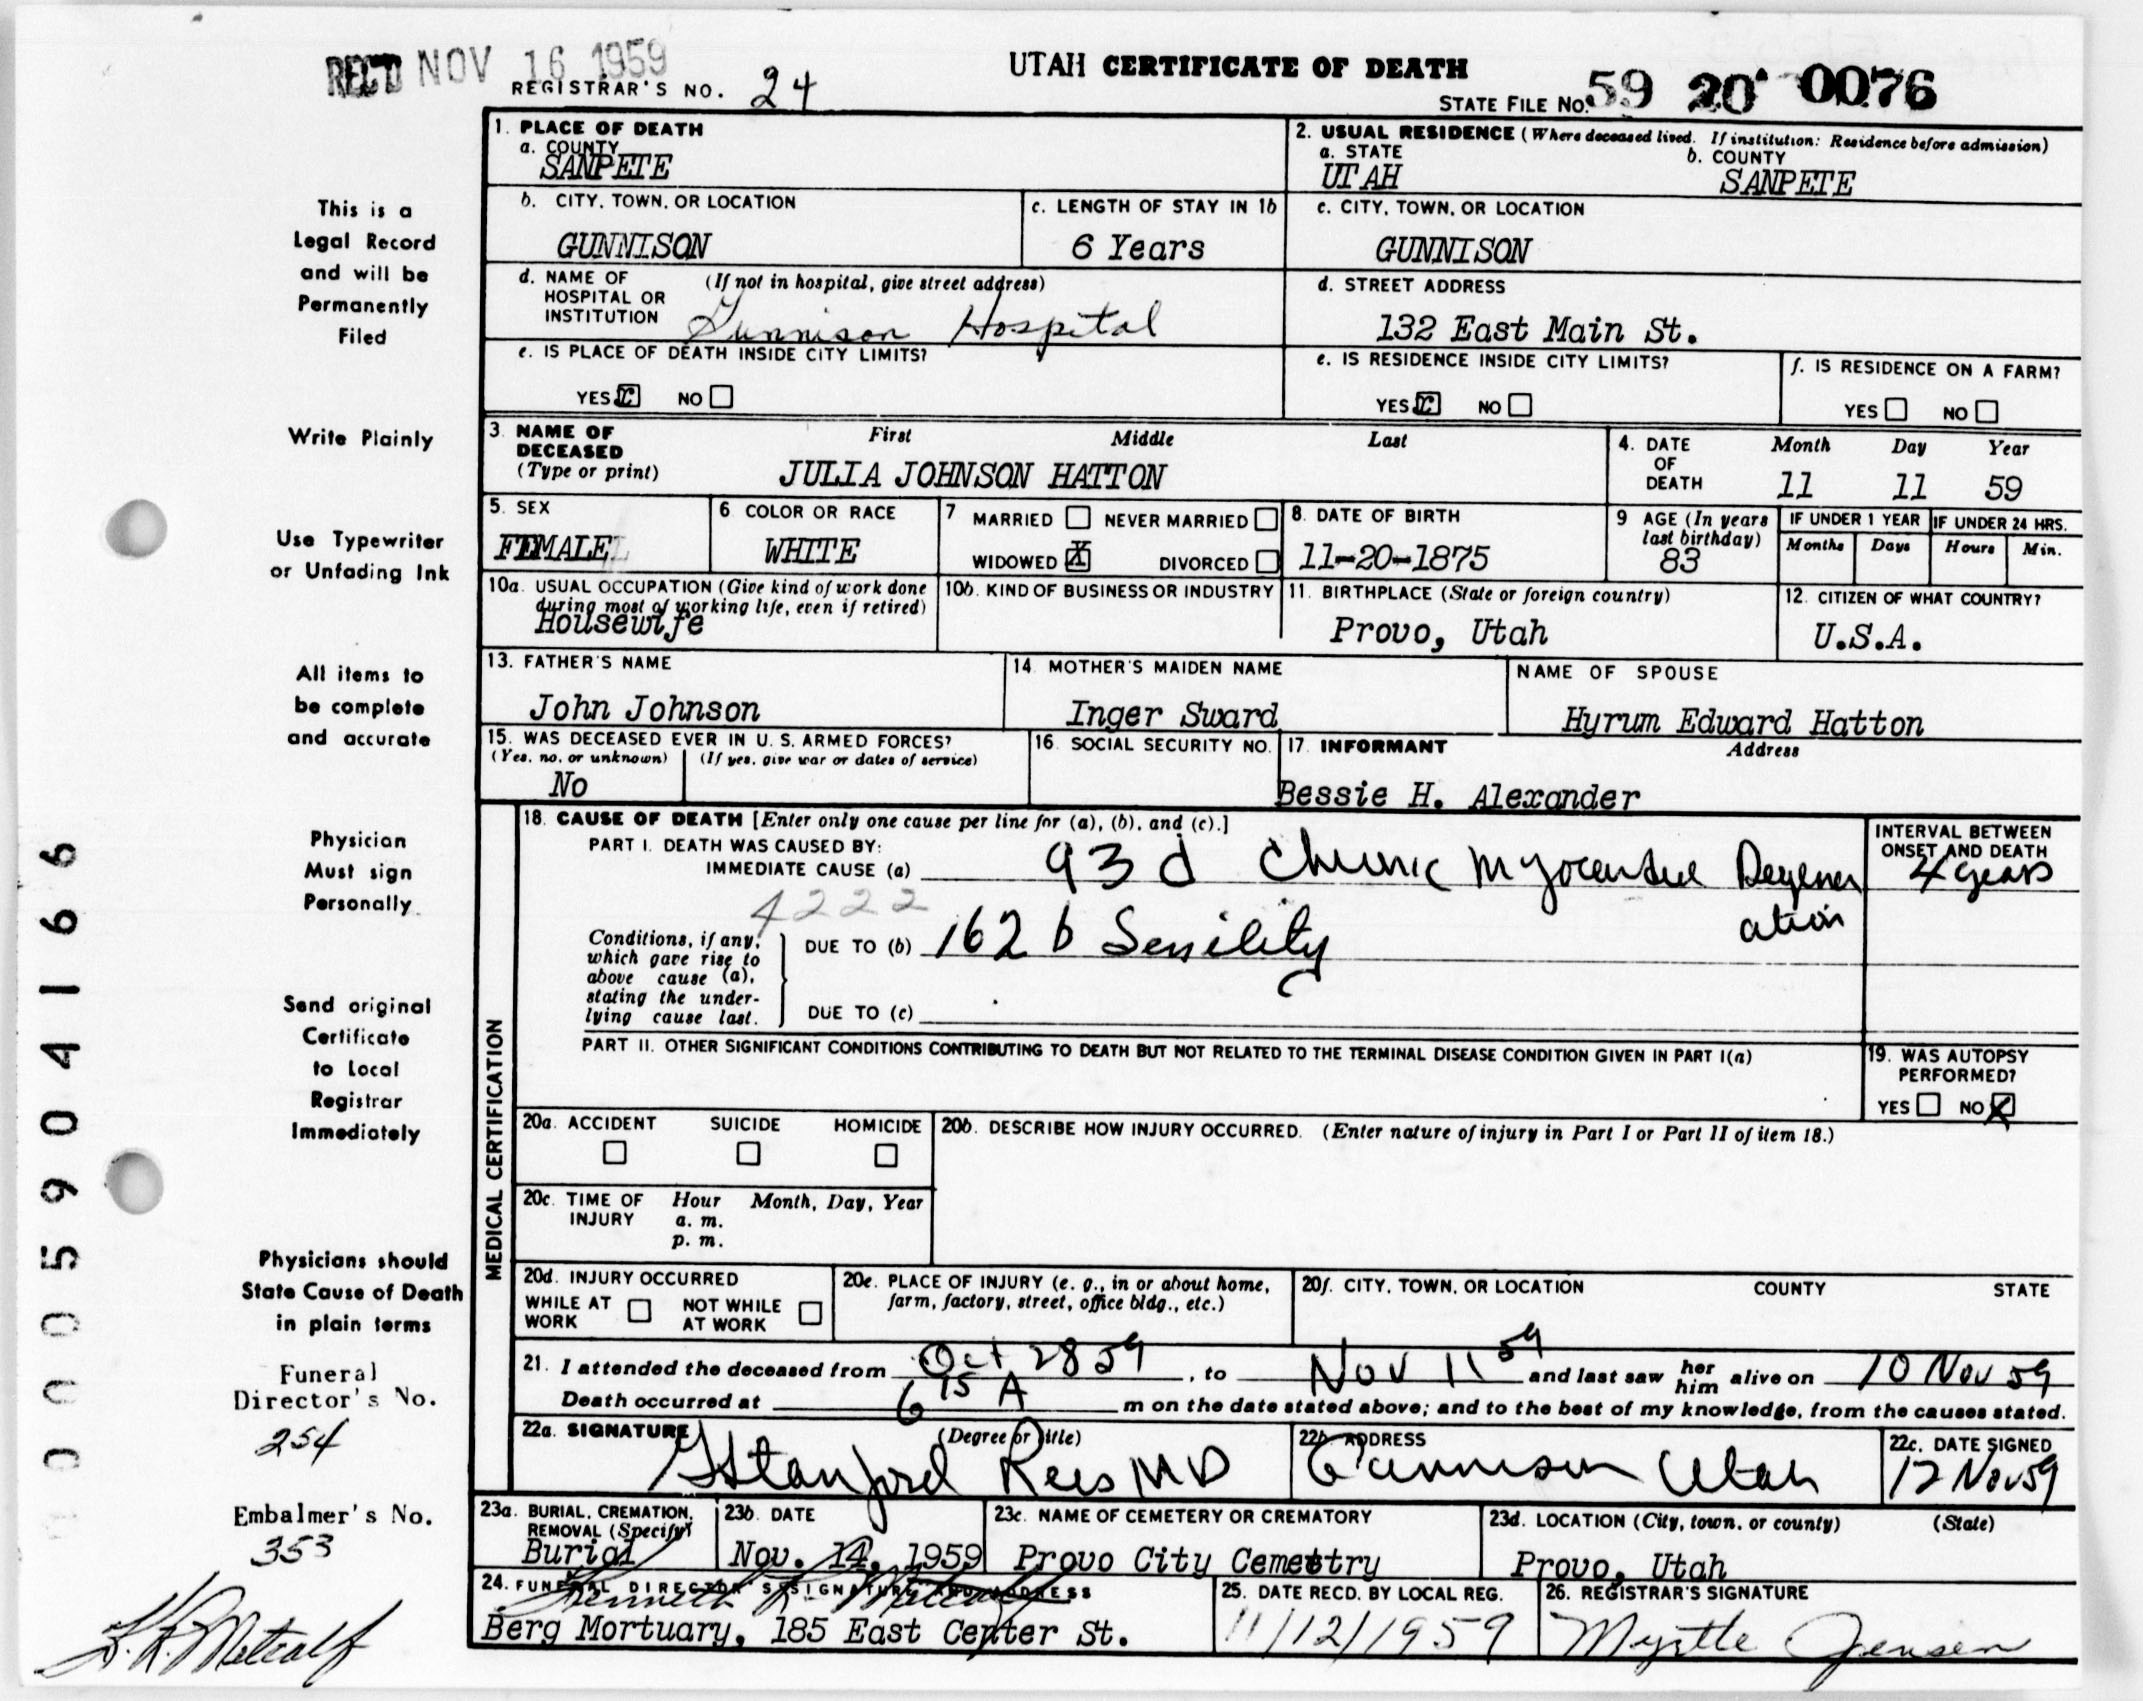 REC'D NOV 16 1959
REGISTRAR'S NO. 24
UTAH CERTIFICATE OF DEATH
STATE FILE No. 59 20 0076
1. PLACE OF DEATH
a. COUNTY
SANPETE
2. USUAL RESIDENCE (Where deceased lived. If institution: Residence before admission)
a. STATE
UTAH
b. COUNTY
SANPETE
b. CITY, TOWN, OR LOCATION
GUNNISON
c. LENGTH OF STAY IN 1b
6 Years
c. CITY, TOWN, OR LOCATION
GUNNISON
d. NAME OF HOSPITAL OR INSTITUTION (If not in hospital, give street address)
Gunnison Hospital
d. STREET ADDRESS
132 East Main St.
e. IS PLACE OF DEATH INSIDE CITY LIMITS?
YES NO
e. IS RESIDENCE INSIDE CITY LIMITS?
YES NO
f. IS RESIDENCE ON A FARM?
YES NO
3. NAME OF DECEASED (Type or print)
First Middle Last
JULIA JOHNSON HATTON
4. DATE OF DEATH
Month Day Year
11 11 59
5. SEX
FEMALE
6 COLOR OR RACE
WHITE
7 MARRIED NEVER MARRIED
WIDOWED X DIVORCED
8. DATE OF BIRTH
11-20-1875
9 AGE (In years last birthday)
83
IF UNDER 1 YEAR
Months Days
IF UNDER 24 HRS.
Hours Min.
10a. USUAL OCCUPATION (Give kind of work done during most of working life, even if retired)
Housewife
10b. KIND OF BUSINESS OR INDUSTRY
11. BIRTHPLACE (State or foreign country)
Provo, Utah
12. CITIZEN OF WHAT COUNTRY?
U.S.A.
13. FATHER'S NAME
John Johnson
14. MOTHER'S MAIDEN NAME
Inger Sward
NAME OF SPOUSE
Hyrum Edward Hatton
15. WAS DECEASED EVER IN U. S. ARMED FORCES?
(Yes, no, or unknown) (If yes, give war or dates of service)
No
16. SOCIAL SECURITY NO.
17. INFORMANT Address
Bessie H. Alexander
MEDICAL CERTIFICATION
18. CAUSE OF DEATH [Enter only one cause per line for (a), (b), and (c).]
PART I. DEATH WAS CAUSED BY:
IMMEDIATE CAUSE (a) 93 d Chronic Myocardial Degener
ation
INTERVAL BETWEEN ONSET AND DEATH
4 years
4222
Conditions, if any, which gave rise to above cause (a), stating the underlying cause last.
DUE TO (b) 162 b Senility
DUE TO (c)
PART II. OTHER SIGNIFICANT CONDITIONS CONTRIBUTING TO DEATH BUT NOT RELATED TO THE TERMINAL DISEASE CONDITION GIVEN IN PART I(a)
19. WAS AUTOPSY PERFORMED?
YES NO X
20a. ACCIDENT SUICIDE HOMICIDE
20b. DESCRIBE HOW INJURY OCCURRED. (Enter nature of injury in Part I or Part II of item 18.)
20c. TIME OF INJURY
Hour Month, Day, Year
a. m.
p. m.
20d. INJURY OCCURRED
WHILE AT WORK NOT WHILE AT WORK
20e. PLACE OF INJURY (e. g., in or about home, farm, factory, street, office bldg., etc.)
20f. CITY, TOWN, OR LOCATION COUNTY STATE
21. I attended the deceased from Oct 28 59, to Nov 11 59 and last saw her him alive on 10 Nov 59
Death occurred at 6 15 A m on the date stated above; and to the best of my knowledge, from the causes stated.
22a. SIGNATURE (Degree or title)
G Stanford Rees MD
22b. ADDRESS
Gunnison Utah
22c. DATE SIGNED
12 Nov 59
23a. BURIAL, CREMATION, REMOVAL (Specify)
Burial
23b. DATE
Nov. 14, 1959
23c. NAME OF CEMETERY OR CREMATORY
Provo City Cemettry
23d. LOCATION (City, town, or county) (State)
Provo, Utah
24. FUNERAL DIRECTOR'S SIGNATURE AND ADDRESS
Kenneth R. Metcalf
Berg Mortuary, 185 East Center St.
25. DATE RECD. BY LOCAL REG.
11/12/1959
26. REGISTRAR'S SIGNATURE
Myrtle Jensen
This is a
Legal Record
and will be
Permanently
Filed
Write Plainly
Use Typewriter
or Unfading Ink
All items to
be complete
and accurate
Physician
Must sign
Personally
Send original
Certificate
to Local
Registrar
Immediately
Physicians should
State Cause of Death
in plain terms
Funeral
Director's No.
254
Embalmer's No.
353
K. R. Metcalf
0005904166